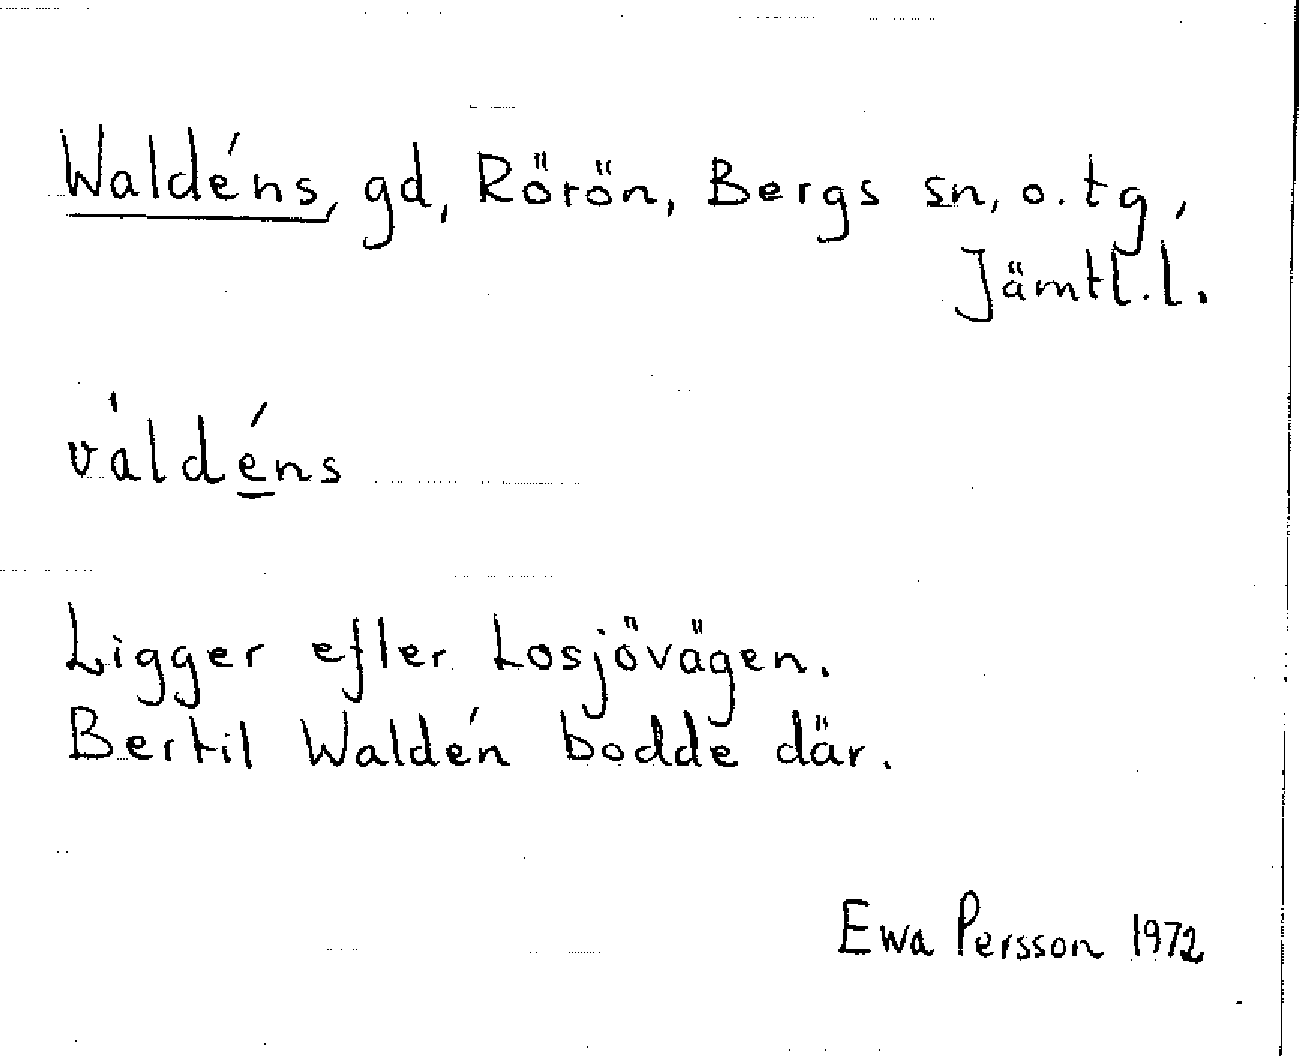 Waldéns, gd, Rörön, Bergs sn, o. tg,
Jämtl. l.
váldéns
Ligger efter Losjövägen.
Bertil Waldén bodde där.
Ewa Persson 1972